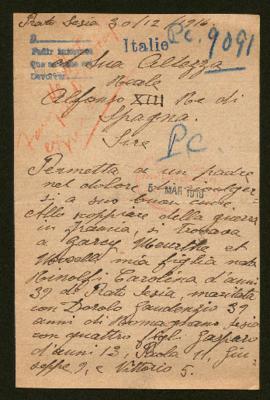 Prato Sesia 30/12/1916
D.
Pedir informes
Que se pide en
Devolver
Italie Pc. 9091
Sua Altezza
Reale
Alfonso XIII Re di
Spagna.
Sire
PC
Permetta a un padre
nel dolore
5 MAR 1916
si a suo buon cuore.
Allo scoppiare della guerra
in Francia, si trovava
a Jarcy Meurthe et
Moselle mia figlia nata
Rinolfi Carolina d'anni
39 di Prato Sesia, maritata
con Dorolo Gaudenzio 39
anni di Romagnano Sesia
con quattro figli Gaspare
d'anni 13, Paola 11, Giu-
seppe 9, e Vittorio 5.